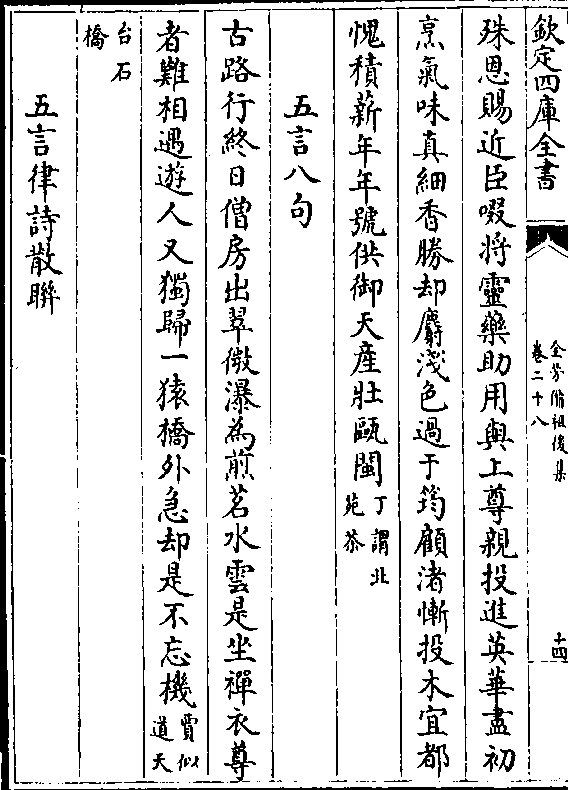 欽定四庫全書
全芳備祖後集
卷二十八
十四
殊恩賜近臣啜將靈藥助用與上尊親投進英華盡初
烹氣味真細香勝却麝淺色過于筠顧渚慚投木宜都
愧積薪年年號供御天産壮甌閩丁謂北苑茶
五言八句
古路行終日僧房出翠微瀑為煎茗水雲是坐禪衣尊
者難相遇遊人又獨歸一猿橋外急却是不忘機賈似道天
台石橋
五言律詩散聯